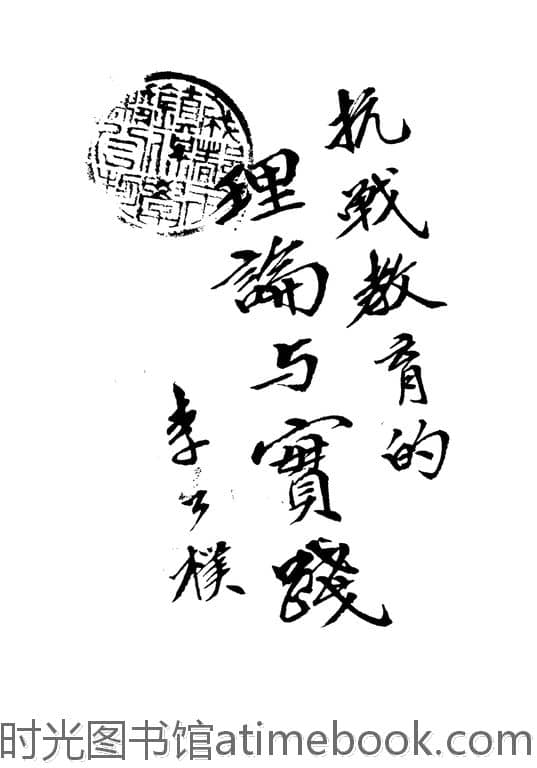 抗战教育的
理論与實踐
李公樸
时光图书馆atimebook.com